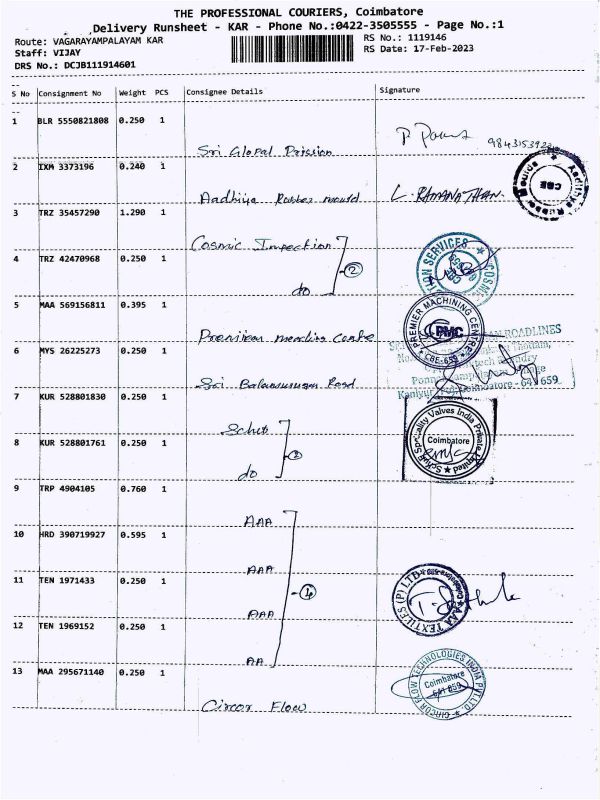 THE PROFESSIONAL COURIERS, Coimbatore
Delivery Runsheet - KAR - Phone No.:0422-3505555 - Page No.:1
Route: VAGARAYAMPALAYAM KAR
Staff: VIJAY
DRS No.: DCJB111914601
RS No.: 1119146
RS Date: 17-Feb-2023
S No Consignment No Weight PCS Consignee Details Signature
1 BLR 5550821808 0.250 1
Sri Global Prission
2 IXM 3373196 0.240 1
Aadhiya Rubber mould L. RAMANATHAN
3 TRZ 35457290 1.290 1
Cosmic Inspection
4 TRZ 42470968 0.250 1
do 2
5 MAA 569156811 0.395 1
PREMIER MACHINING CENTRE
PMC
CBE-659
6 MYS 26225273 0.250 1
Sri Road
7 KUR 528801830 0.250 1
Schub
8 KUR 528801761 0.250 1
do
Schub Speciality Valves India Private Limited
Coimbatore
9 TRP 4904105 0.760 1
AAA
10 HRD 390719927 0.595 1
AAA
11 TEN 1971433 0.250 1
AAA 4
AAA TEXTILES (P) LTD
12 TEN 1969152 0.250 1
AA
13 MAA 295671140 0.250 1
Circor Flow
CIRCOR FLOW TECHNOLOGIES INDIA PVT. LTD.
Coimbatore
641 659